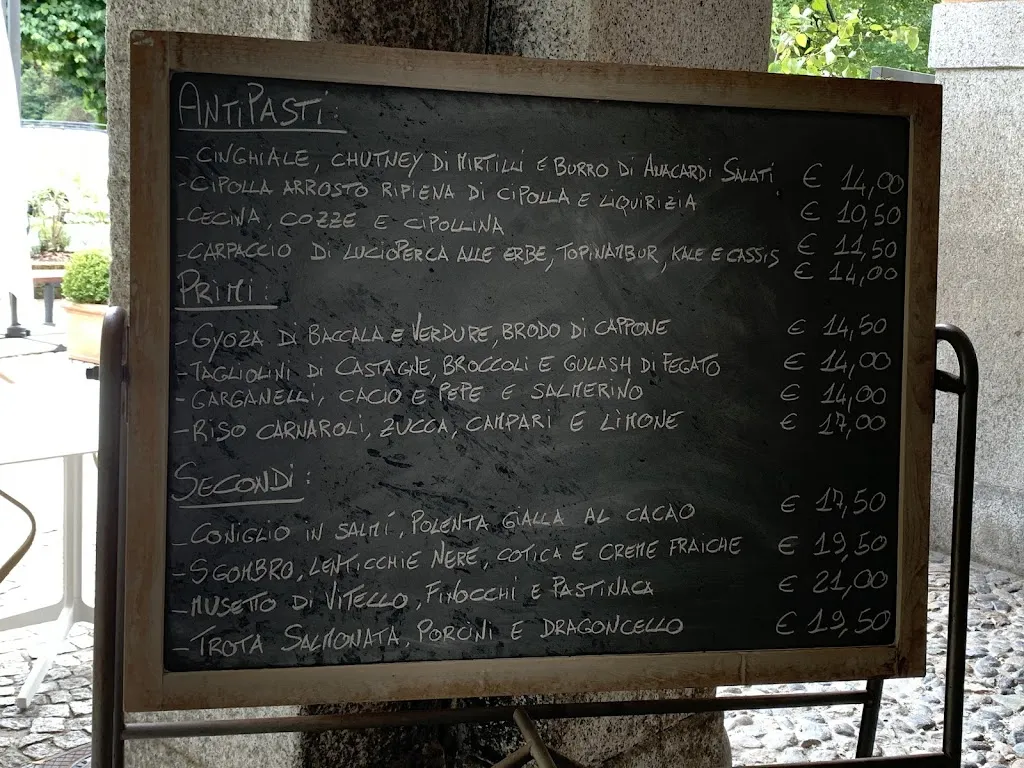 ANTIPASTI:
- CINGHIALE, CHUTNEY DI MIRTILLI E BURRO DI ANACARDI SALATI € 14,00
- CIPOLLA ARROSTO RIPIENA DI CIPOLLA E LIQUIRIZIA € 10,50
- CECINA, COZZE E CIPOLLINA € 11,50
- CARPACCIO DI LUCIOPERCA ALLE ERBE, TOPINAMBUR, KALE E CASSIS € 14,00
PRIMI:
- GYOZA DI BACCALA E VERDURE, BRODO DI CAPPONE € 14,50
- TAGLIOLINI DI CASTAGNE, BROCCOLI E GULASH DI FEGATO € 14,00
- GARGANELLI, CACIO E PEPE E SALMERINO € 14,00
- RISO CARNAROLI, ZUCCA, CAMPARI E LIMONE € 17,00
SECONDI:
- CONIGLIO IN SALMÍ, POLENTA GIALLA AL CACAO € 17,50
- SGOMBRO, LENTICCHIE NERE, COTICA E CREME FRAICHE € 19,50
- MUSETTO DI VITELLO, FINOCCHI E PASTINACA € 21,00
- TROTA SALMONATA, PORCINI E DRAGONCELLO € 19,50